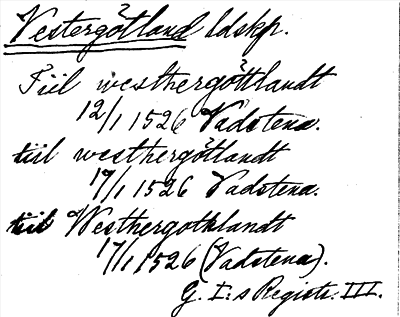 Vestergötland ldskp.
Tiil westhergöttlandt
12/1 1526 Vadstena.
tiil westhergötlandt
17/1 1526 Vadstena.
tiil Westhergothlandt
17/1 1526 (Vadstena).
G. I:s Registr. III.